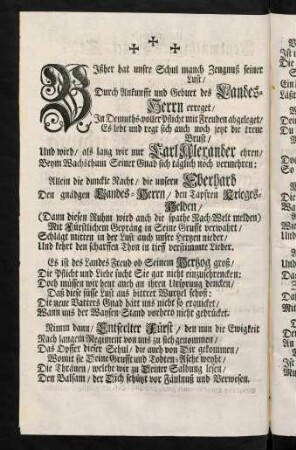 Bißher hat unsre Schul manch Zeugnuß seiner
Lust /
Durch Ankunfft und Geburt des Landes-
Herrn erreget /
In Demuths-voller Pflicht mit Freuden abgeleget /
Es lebt und regt sich auch noch jetzt die treue
Brust /
Und wird / als lang wir nur Carl Alexander ehren /
Beym Wachsthum Seiner Gnad sich täglich noch vermehren:
Allein die dunckle Nacht / die unsern Eberhard
Den gnädgen Landes-Herrn / den Tapfren Krieges-
Helden /
(Dann diesen Ruhm wird auch die spathe Nach-Welt melden)
Mit Fürstlichem Gepräng in Seine Grufft verwahrt /
Schlägt mitten in der Lust auch unsre Hertzen nieder /
Und kehrt den scharffen Thon in tieff verstimmte Lieder.
Es ist des Landes Freud ob Seinem Hertzog groß /
Die Pflicht und Liebe sucht Sie gar nicht einzuschrencken:
Doch müssen wir heut auch an ihren Ursprung dencken /
Daß diese süsse Lust aus bittrer Wurtzel schoß:
Die neue Vatters Gnad hätt uns nicht so erquicket /
Wann uns der Waysen-Stand vorhero nicht gedrücket.
Nimm dann / Entseelter Fürst / den nun die Ewigkeit
Nach langem Regiment von uns zu sich genommen /
Das Opffer dieser Schul / die auch von Dir gekommen /
Womit sie Deine Grufft und Todten-Asche weyht /
Die Thränen / welche wir zu Deiner Salbung lesen /
Den Balsam / der Dich schützt vor Fäulnuß und Verwesen.